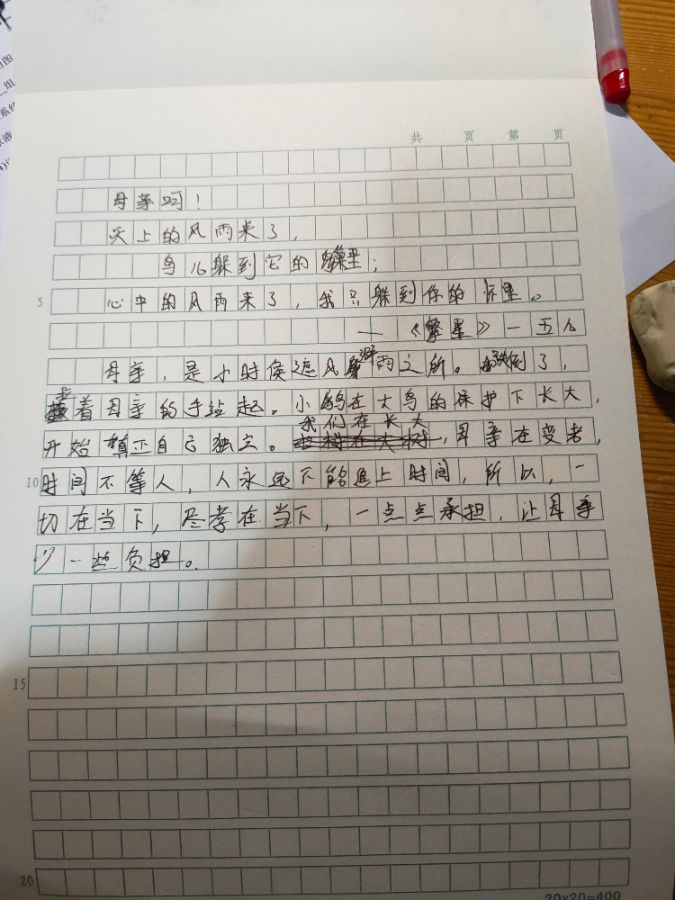 共 页 第 页
母亲啊！
天上的风雨来了，
鸟儿躲到它的巢里；
5 心中的风雨来了，我只躲到你的怀里。
——《繁星》一五九
母亲，是小时候遮风避雨之所。跌倒了，
牵着母亲的手站起。小鸟在大鸟的保护下长大，
我们在长大
开始真正自己独立。母亲在变老，
10 时间不等人，人永远不能追上时间，所以，一
切在当下，尽孝在当下，一点点承担，让母亲
少一些负担。
15
20
20×20=400